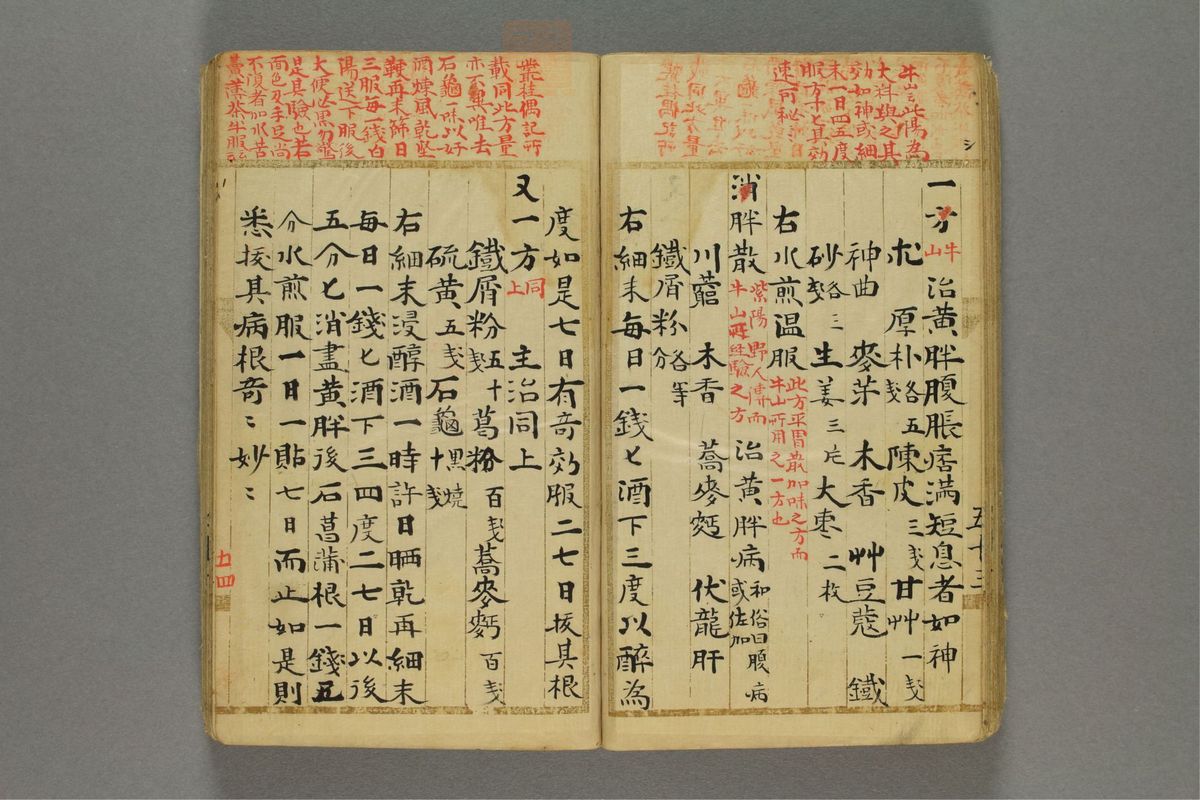 牛山云此湯為
大料與之其
効如神或細
末一日四五度
服方十七其効
速可秘〻
一方 牛山 治黄胖腹脹痞満短息者如神
朮 厚朴各五戔 陳皮三戔 甘艸一戔
神曲 麥芽 木香 艸豆蔻 鐵
砂各三戔 生姜三片 大枣二枚
右水煎温服 此方平胃散加味之方而
牛山所用之一方也
消胖散 紫陽野人傳而
牛山所経驗之方 治黄胖病 和俗曰腹病
或佐加
川藭 木香 蕎麥麪 伏龍肝
鐵屑粉 各等分
右細末每日一錢匕酒下三度以醉為
五十三
叢桂偶記所
載同此方量
亦不異唯去
石龜一味以好
酒煉風乾堅
鞕再末篩日
三服每一錢白
湯送下服後
大便必黒勿驚
是其驗也若
面色及手足尚
不復者加水苦
度如是七日有竒効服二七日拔其根
又一方 同上 主治同上
鐵屑粉五十戔 葛粉百戔 蕎麥麪百戔
硫黄五戔 石龜黒燒十戔
右細末浸醇酒一時許日晒乾再細末
每日一錢匕酒下三四度二七日以後
五分匕消盡黄胖後石菖蒲根一錢五
分水煎服一日一貼七日而止如是則
悉拔其病根竒〻妙〻
五十四